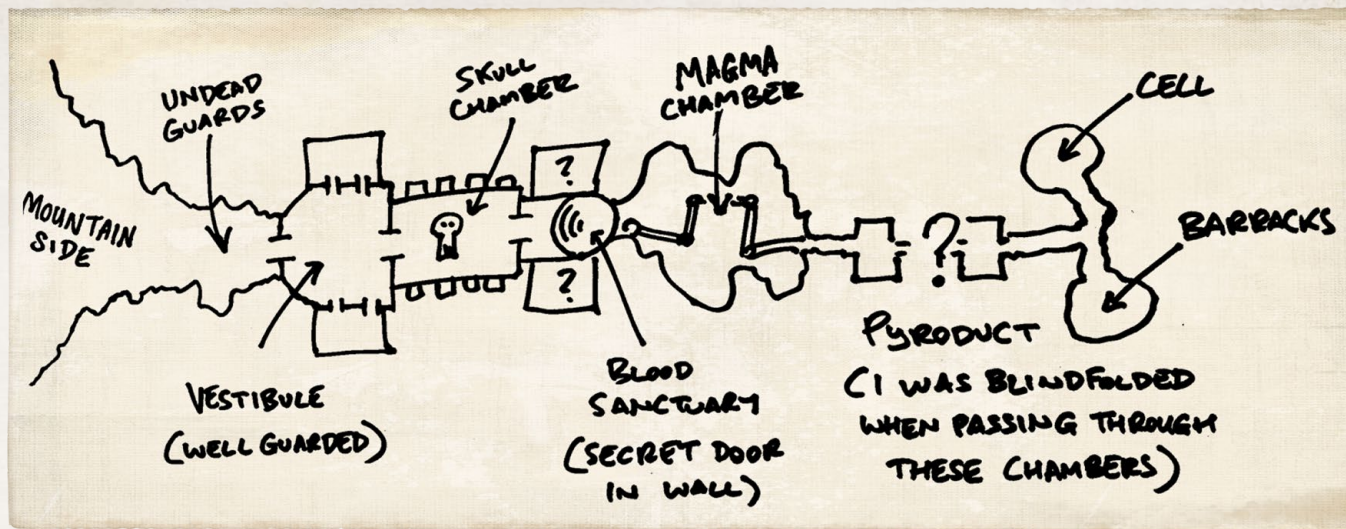 UNDEAD
GUARDS
SKULL
CHAMBER
MAGMA
CHAMBER
CELL
MOUNTAIN
SIDE
?
?
?
BARRACKS
VESTIBULE
(WELL GUARDED)
BLOOD
SANCTUARY
(SECRET DOOR
IN WALL)
PYRODUCT
(I WAS BLINDFOLDED
WHEN PASSING THROUGH
THESE CHAMBERS)